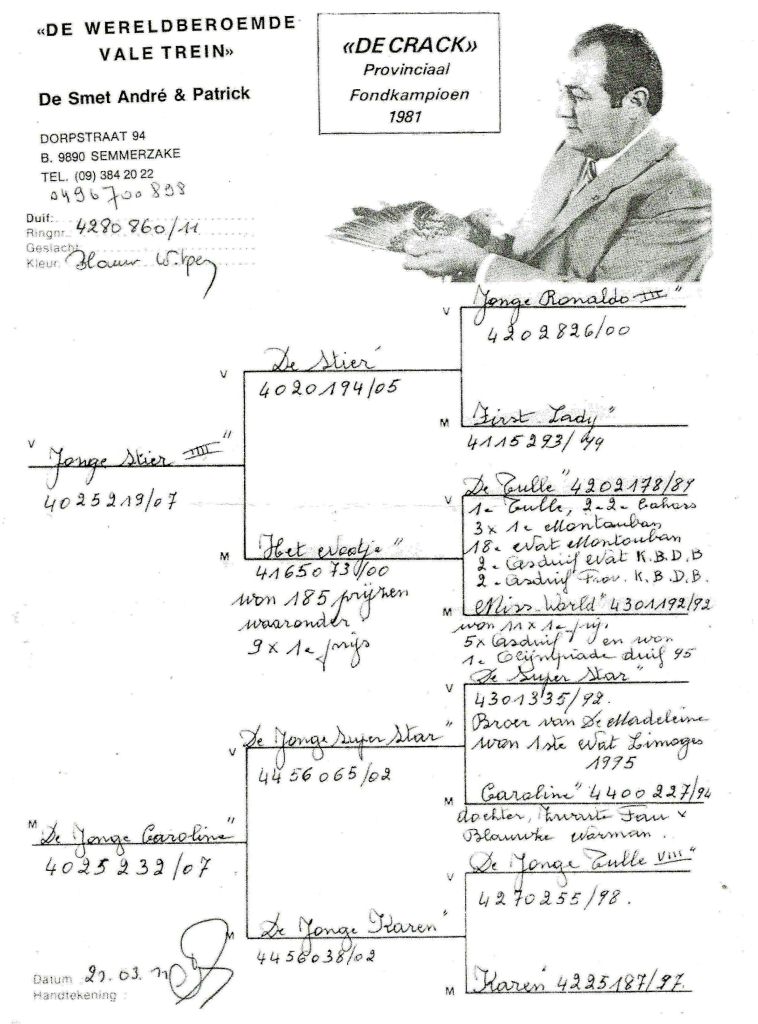 «DE WERELDBEROEMDE
VALE TREIN»
De Smet André & Patrick
DORPSTRAAT 94
B. 9890 SEMMERZAKE
TEL. (09) 384 20 22
0496700898
«DE CRACK»
Provinciaal
Fondkampioen
1981
Duif:
Ringnr. 4280860/11
Geslacht
Kleur. Blauw W.pen
V Jonge Ronaldo III"
4202826/00
V De Stier
4020194/05
M First Lady"
4115293/99
V Jonge Stier IIII"
4025219/07
V De Tulle" 4202178/89
1e Tulle, 2-2e Cahors
3x 1e Montauban
18e Nat Montauban
2e Asduif Nat K.B.D.B
2e Asduif Prov. K.B.D.B.
M Het Nootje"
4165073/00
won 185 prijzen
waaronder
9x 1e prijs
M Miss World" 4301192/92
won 11x 1e prij.
5x Asduif en won
1e Olijmpiade duif 95
V De Super Star"
4301335/92.
Broer van De Madeleine
won 1ste Nat Limoges
1995
V De Jonge Super Star"
4456065/02
M Caroline" 4400227/94
dochter, Zwarte Fau x
Blauwke Warman.
M De Jonge Caroline"
4025232/07
V De Jonge Tulle VIII"
4270255/98.
M De Jonge Karen"
4456038/02
M Karen" 4225187/97.
Datum 21.03.
Handtekening :